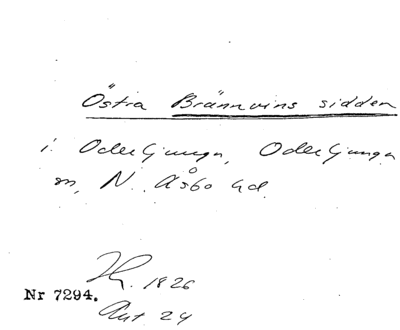 Östra Brännvins sidden
i. Oderljunga, Oderljunga
sn, N. Åsbo hd.
1826
Nr 7294.
Akt 24